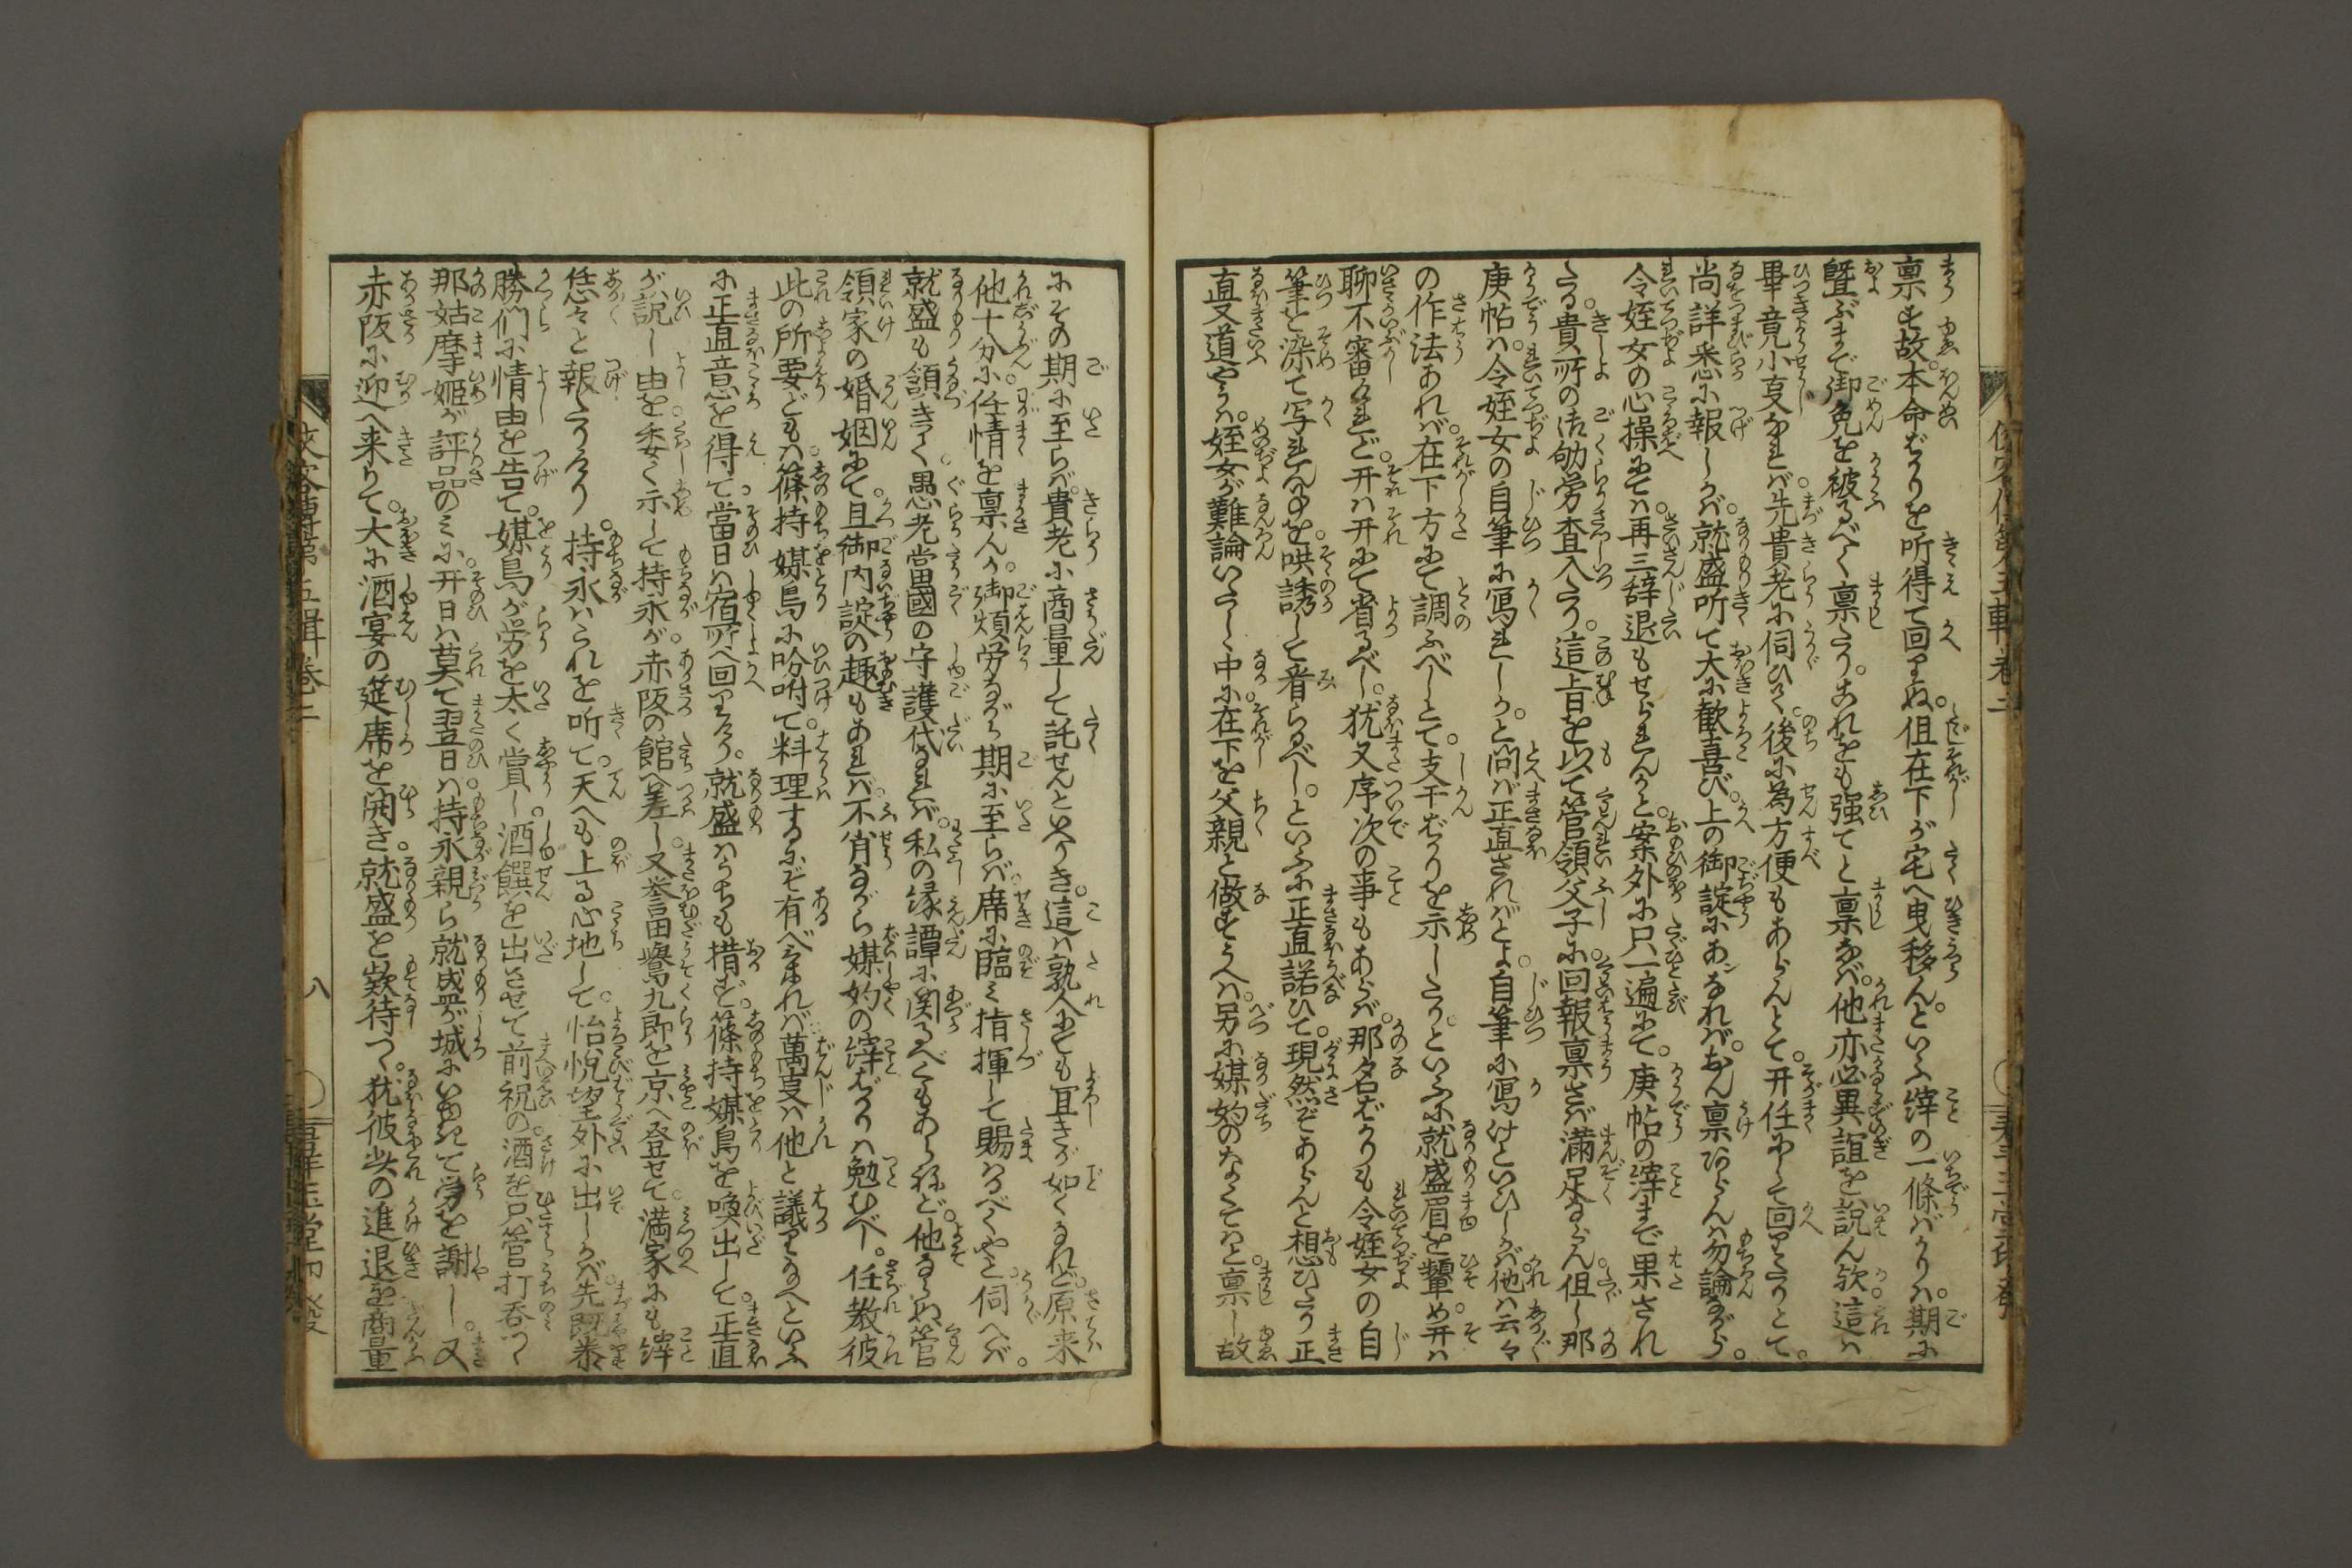 稟さん故。本命ばかりを听得て回りぬ。但在下が宅へ曳移さん。といふ縡の一條ばかりハ。期に
曁ぶまで御免を被るべく稟たり。われをも强てと稟なば。他亦必異誼を説ん欤。這ハ
畢竟小支なれバ。先貴老に伺ひて。後に為方便もあらんとて。开任にして回りたりとて。
尚詳悉に報しかバ。就盛听て大に歓喜び。上の御諚にあンなれバ。おん稟ならんハ勿論ながら。
令姪女の心操にてハ。再三辞退もせられんかと。案外に只一遍にて。庚帖の縡まで果され
たる。貴所の御劬労査入たり。這旨を以て管領父子に回報稟さバ満足ならん。但し那
庚帖ハ。令姪女の自筆に寫れしか。と問バ正直さればとよ。自筆に寫けといひしかバ。他ハ云々
の作法あれバ。在下方にて調ふべしとて。支干ばかりを示したり。といふに就盛眉を顰め。开ハ
聊不審なれど。开ハ开にて省るべし。犹又序次の事もあらバ。那名ばかりも令姪女の自
筆を染て写れんやを。哄誘して看らるべし。といふに正直諾ひて。現然ぞあらんと想ひたり。正
直又道やう。姪女が難論いたしく中に。在下を父親と做さんにハ。另に媒妁のなくてハと。稟し故
にその期に至らバ。貴老に商量して託せんといへりき。這ハ孰人にても宜きが如くなれど。原来
他十分に任情を稟んか。御煩労ながら期に至らバ。席に臨ミ指揮して賜ハるべくや。と伺へバ。
就盛も頷きて。愚老當國の守護代なれバ。私の縁譚に関るべくもあらねど。他ならぬ管
領家の婚姻にて。且御内諚の趣もあれバ。不肖ながら媒妁の縡ばかりハ勉むべし。任教彼
此の所要どもハ。篠持媒鳥に吩咐て。料理するにぞ有べけれバ。萬支ハ他と議りたまへといふ
に正直意を得て。當日ハ宿所へ回りけり。就盛ハうちも措ど。篠持媒鳥を喚出して。正直
が説し由を。委く示して持永が。赤阪の館へ差し。又誉田鷺九郎を京へ登せて。満家にも縡
恁々と報たりけり。持永ハこれを听て。天へも上る心地して。怡悦望外に出しかバ。先即泰
勝们に情由を告て。媒鳥が労を太く賞し。酒饌を出させて前祝の。酒を只管打呑つゝ
那姑摩姫が評品のミに。开日ハ莫て翌日ハ。持永親ら就盛が城にいゆきて。労を謝し。又
赤阪に迎へ来りて。大に酒宴の筵席を開き。就盛を欵待つゝ。犹彼此の進退を商量
俠客傳第五輯卷二
八